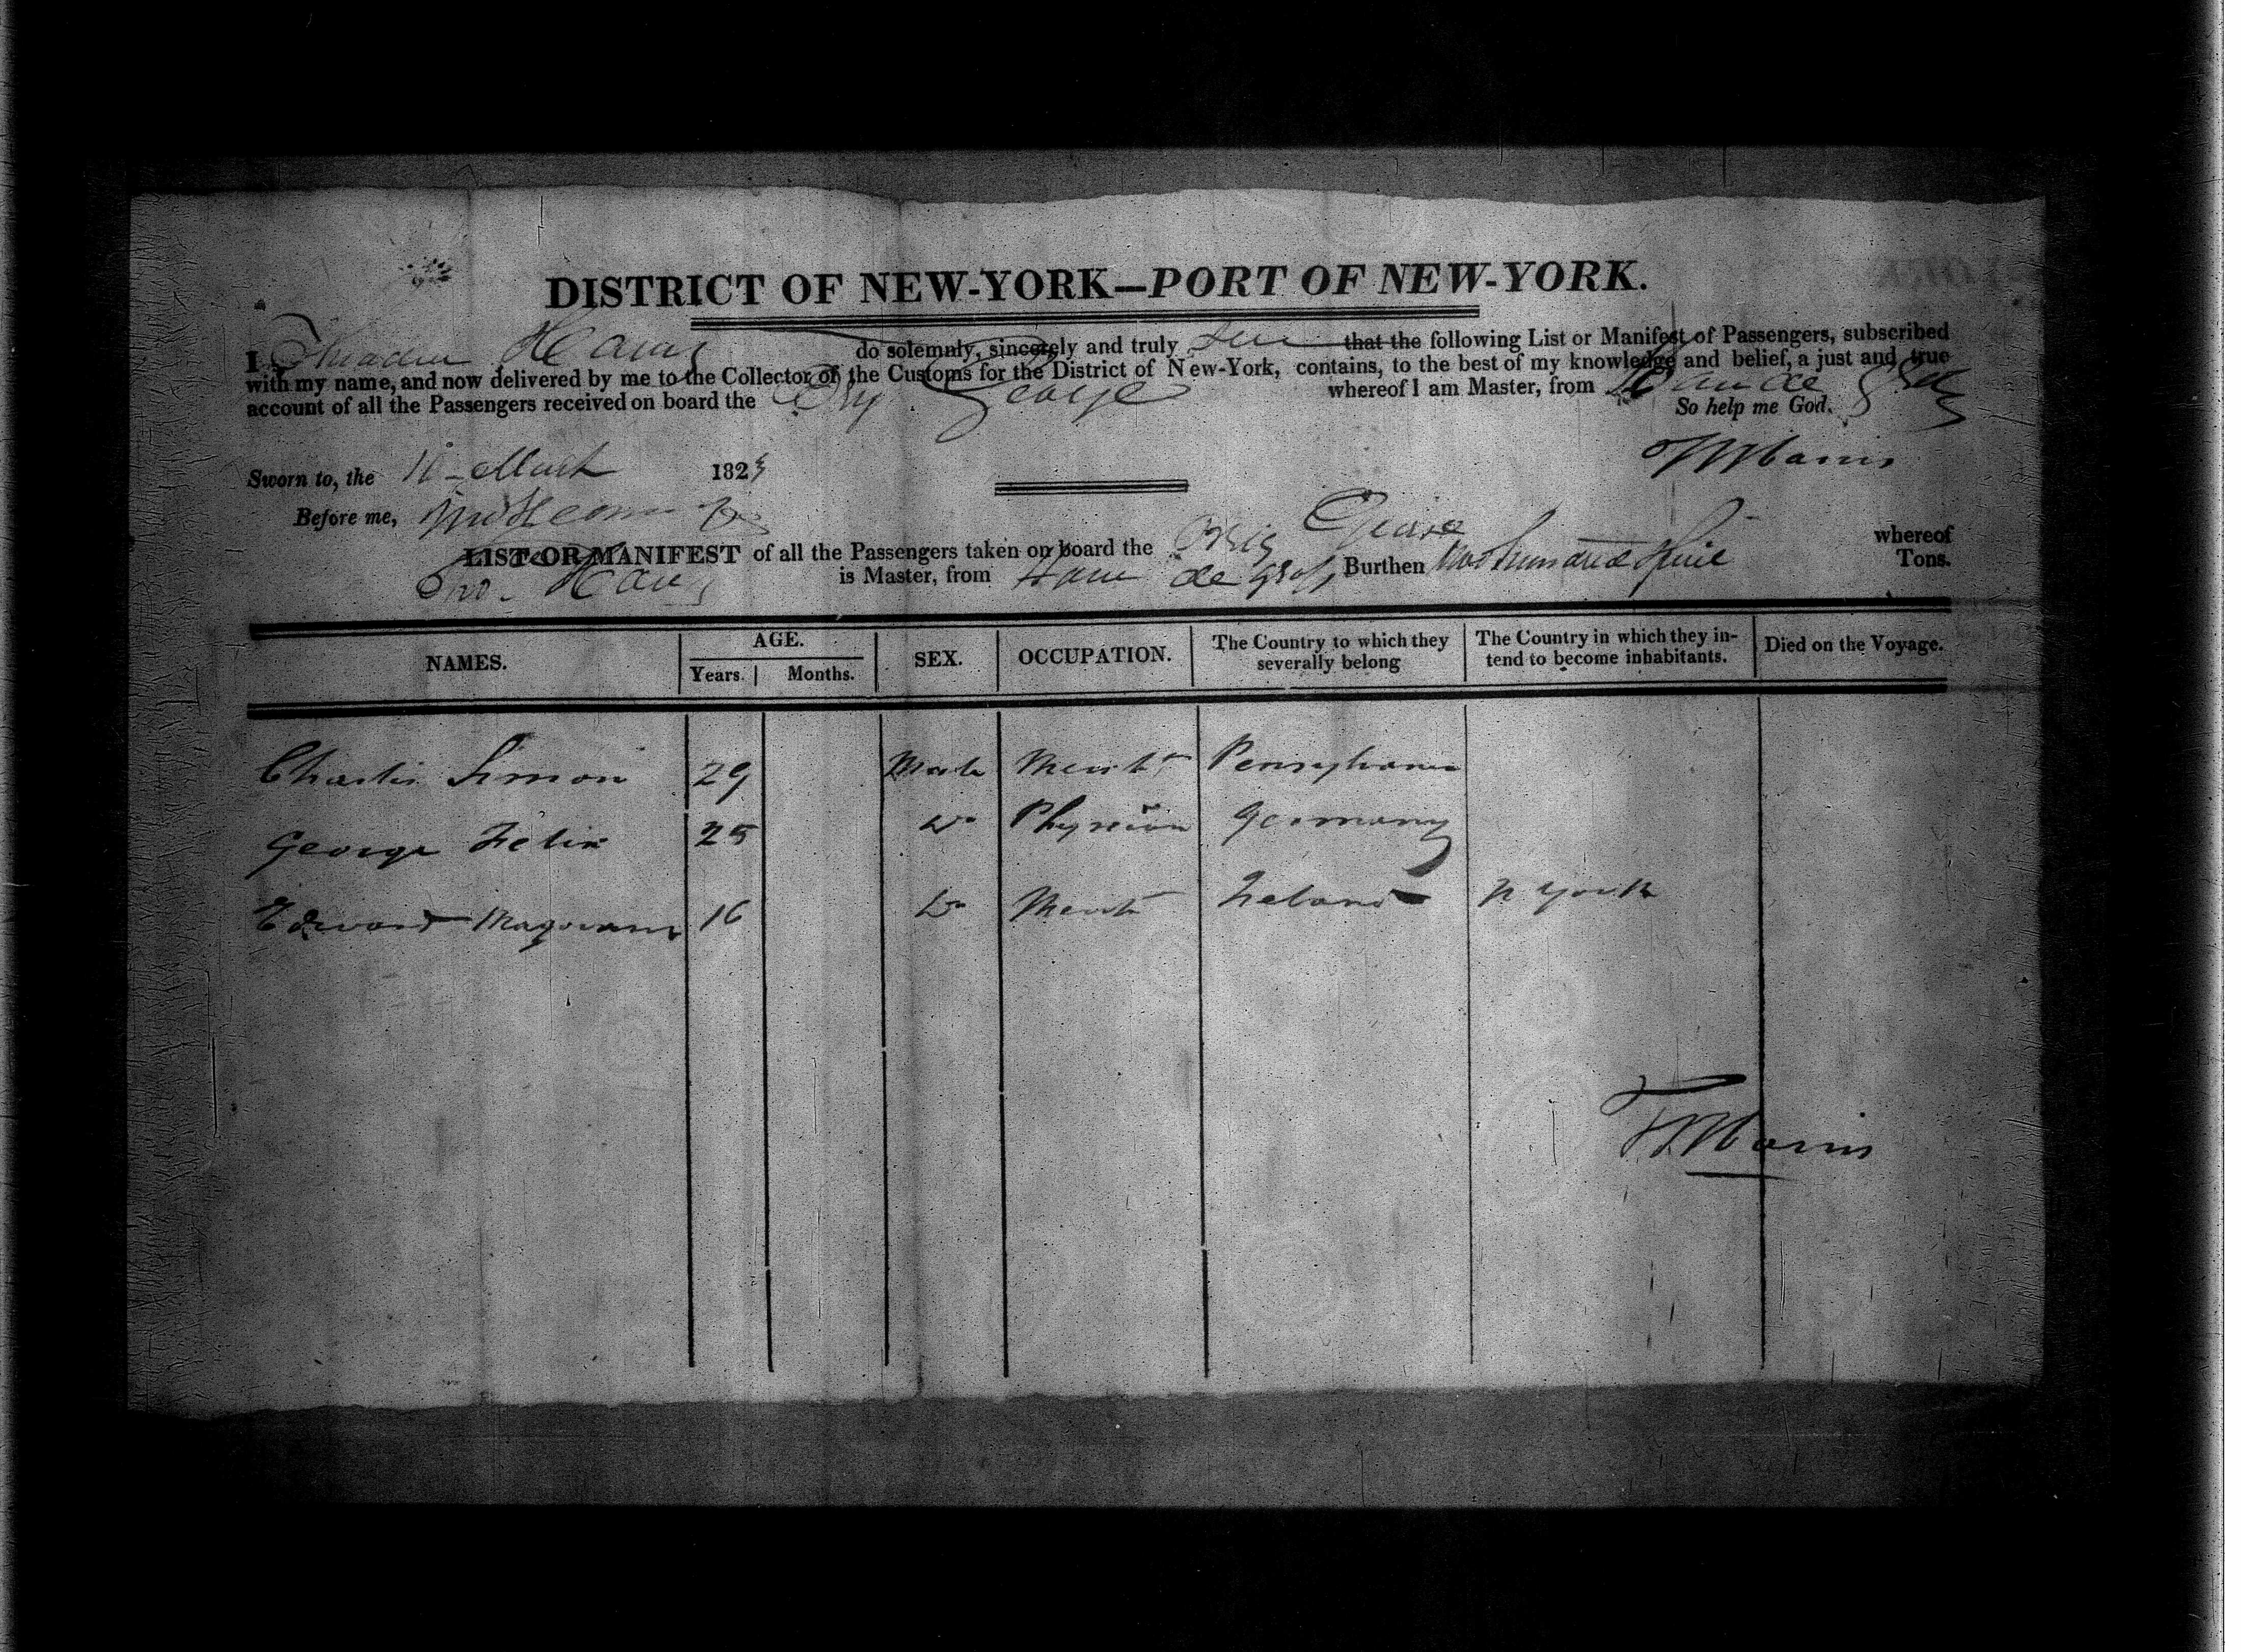 DISTRICT OF NEW-YORK—PORT OF NEW-YORK.
I do solemnly, sincerely and truly that the following List or Manifest of Passengers, subscribed
with my name, and now delivered by me to the Collector of the Customs for the District of New-York, contains, to the best of my knowledge and belief, a just and true
account of all the Passengers received on board the Brig George whereof I am Master, from
So help me God.
Sworn to, the March 182
Before me,
LIST OR MANIFEST of all the Passengers taken on board the Brig George whereof
is Master, from Burthen two hundred Tons.
NAMES. AGE. SEX. OCCUPATION. The Country to which they severally belong The Country in which they intend to become inhabitants. Died on the Voyage.
Years. Months.
Charles Simon 29 Male Mercht Pensylvania
George Felix 25 Do Physician Germany
Edward 16 Do Mercht Ireland N York